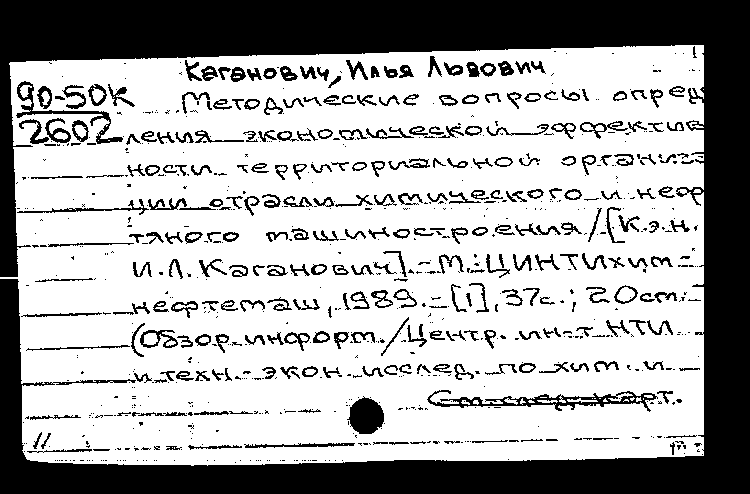 Каганович, Илья Львович
90-50К
2602
Методические вопросы опреде
ления экономической эффектив
ности территориальной организа
ции отрасли химического и неф
тяного машиностроения / [К.э.н.
И.Л. Каганович]. - М.: ЦИНТИхим-
нефтемаш, 1989. - [1], 37с.; 20см. -
(Обзор. информ. / Центр. ин-т НТИ
и техн.-экон. исслед. по хим. и
См. след. карт.
11